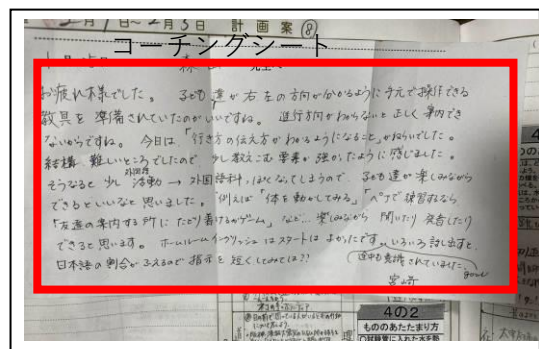 2月1日~2月5日 計画案⑧
コーチングシート
お疲れ様でした。 子ども達が右左の方向が分かるように手元で操作できる
教具を準備されていたのがいいですね。 進行方向がわからないと正しく案内でき
ないからですね。 今日は「行き方の伝え方がわかるようになること」がねらいでした。
結構難しいところでしたので 少し教えこむ要素が強かったように感じました。
そうなると少し 外国語活動→外国語科っぽくなってしまうので、子ども達が楽しみながら
できるといいなと思いました。 例えば「体を動かしてみる」「ペアで練習するなら
「友達の案内する所にたどり着けるかゲーム」など… 楽しみながら 聞いたり 発音したり
できると思います。 ホームルームイングリッシュはスタートはよかったです。いろいろ話し出すと、
日本語の割合がふえるので指示を短くしてみては??
(途中も意識されていました。good
宮崎
4の2
もののあたたまり方